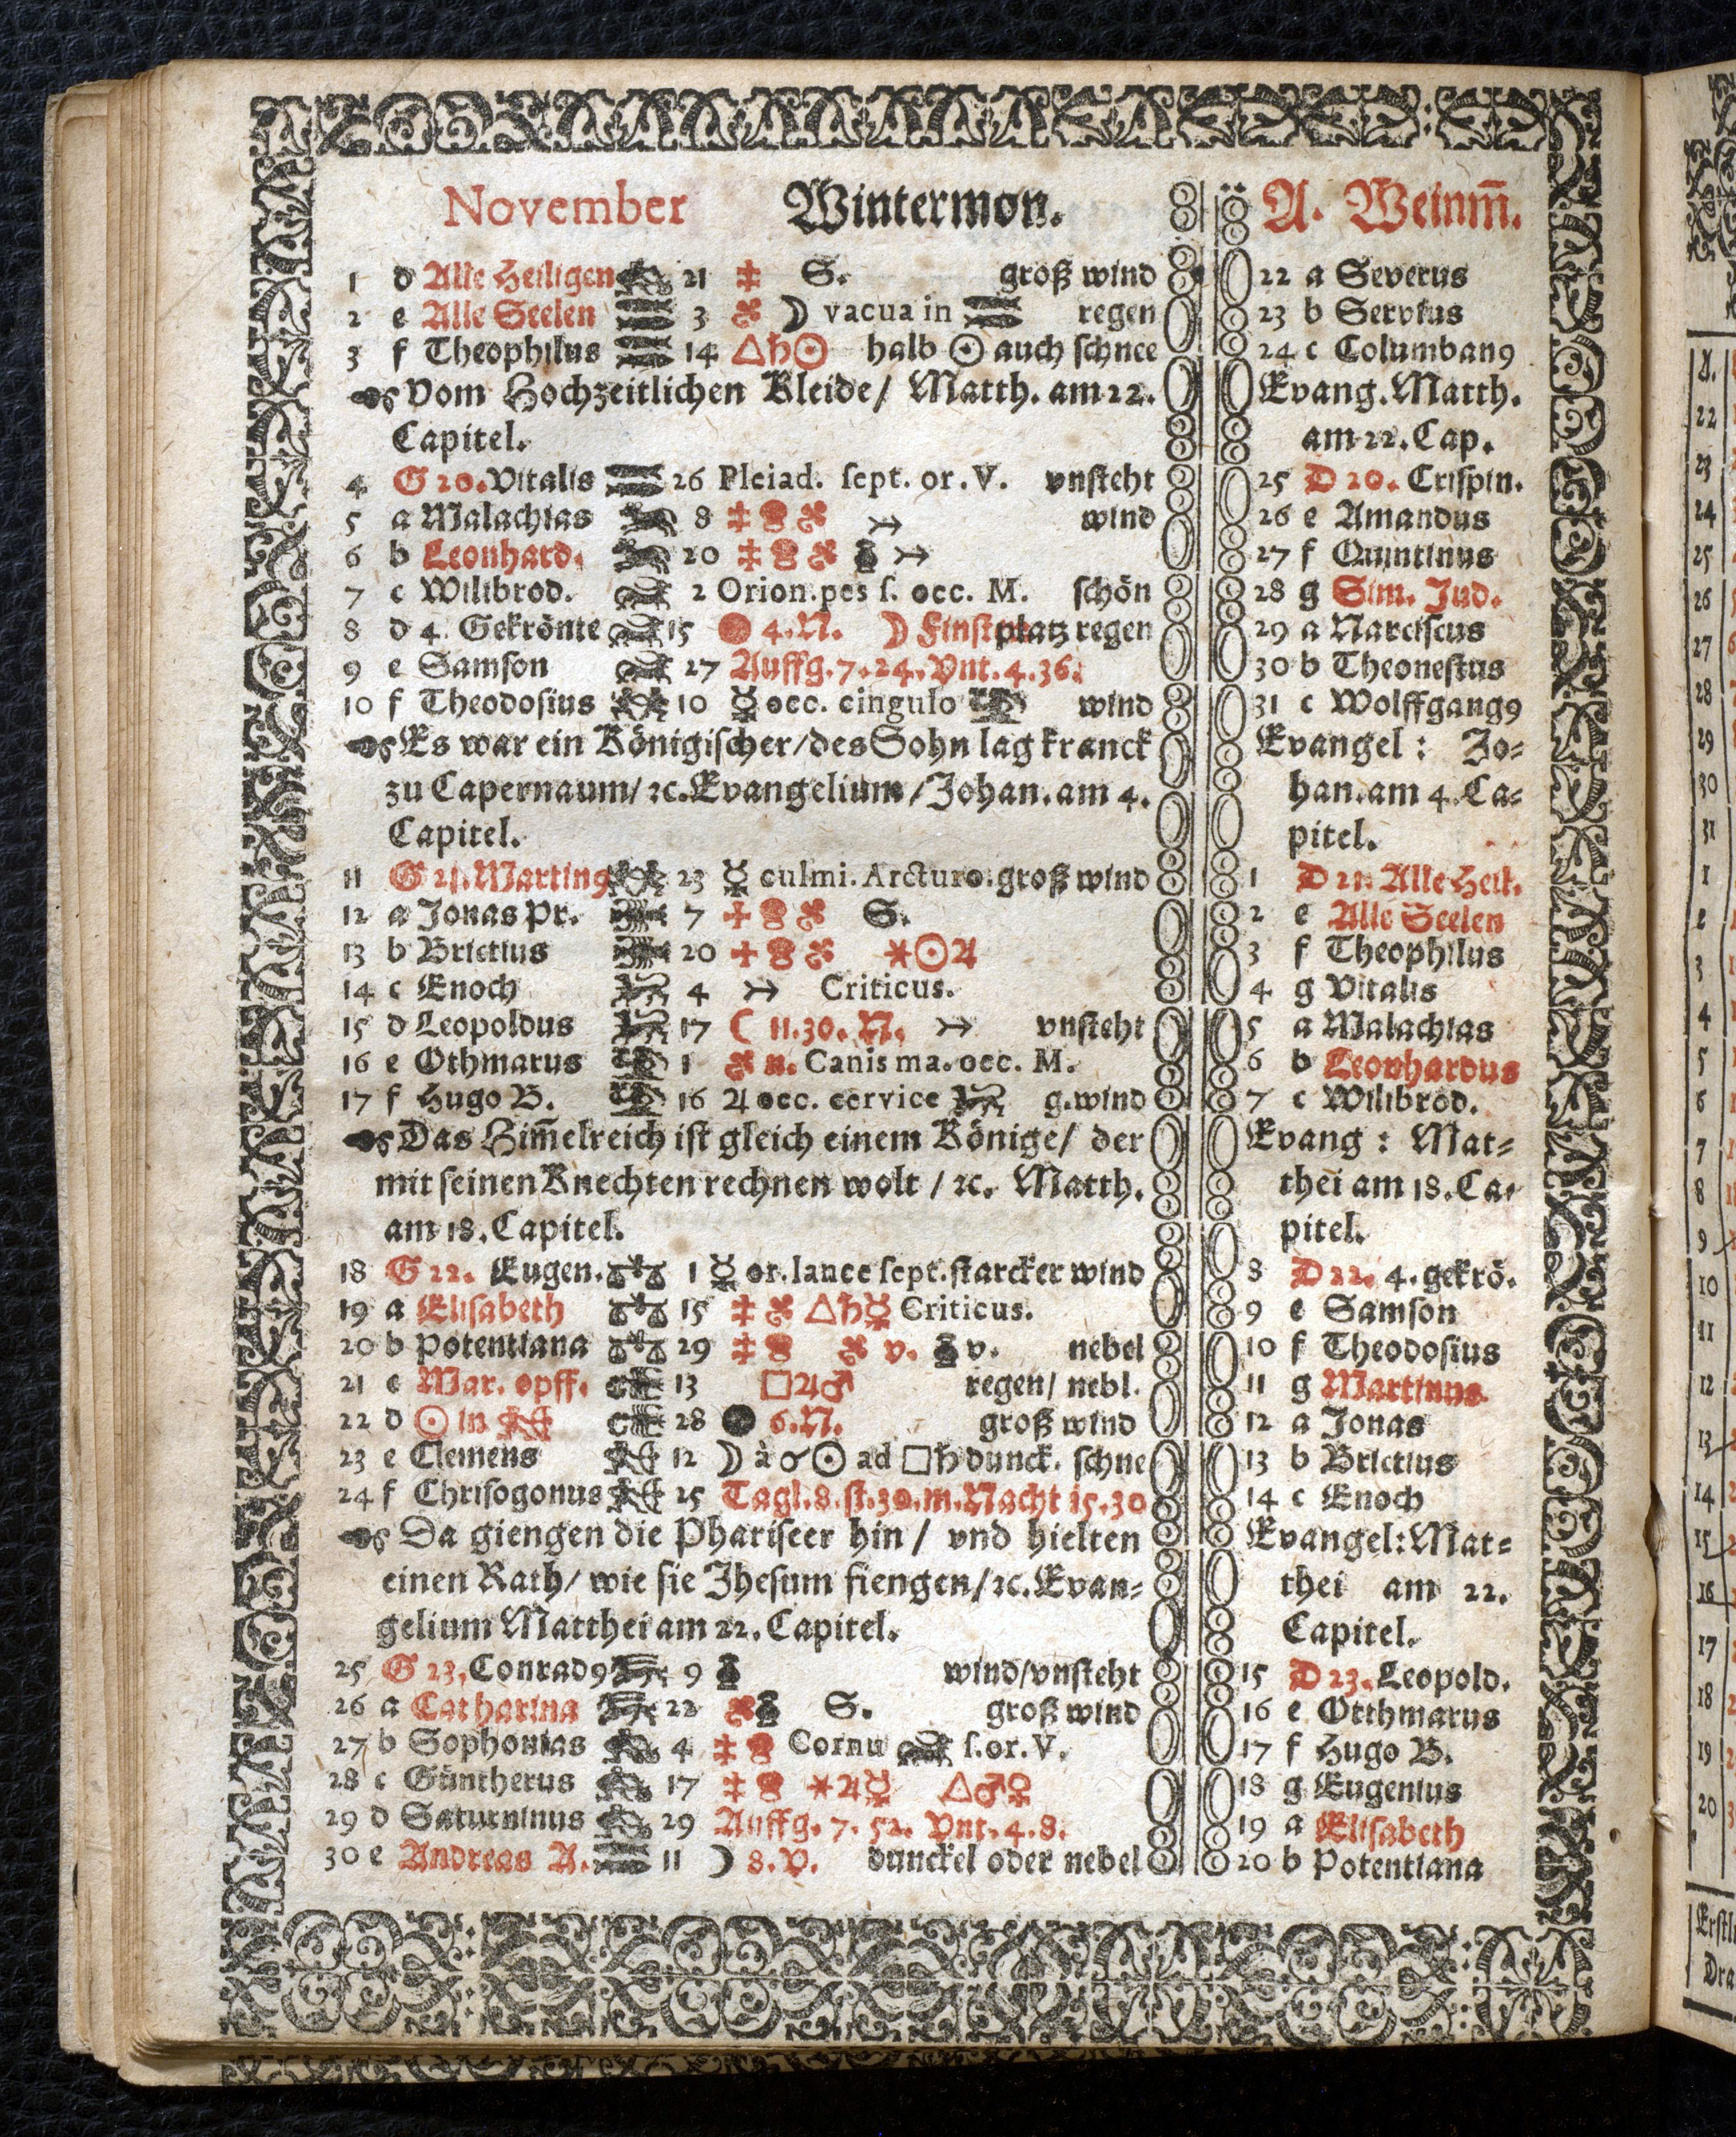 November Wintermon. A. Weinm̃.
1 d Alle Heiligen 21 S. groß wind 22 a Severus
2 e Alle Seelen 3 ☽ vacua in ♓ regen 23 b Servtus
3 f Theophilus 14 △♄☉ halb ☉ auch schnee 24 c Columban9
Vom Hochzeitlichen Kleide/ Matth. am 22. Evang. Matth.
Capitel. am 22. Cap.
4 G 20. Vitalis 26 Pleiad. sept. or. V. vnsteht 25 D 20. Crispin.
5 a Malachias 8 wind 26 e Amandus
6 b Leonhard. 20 27 f Quintinus
7 c Wilibrod. 2 Orion. pes s. occ. M. schön 28 g Sim. Jud.
8 d 4. Gekrönte 15 4. N. ☽ platz regen 29 a Narciscus
9 e Samson 27 Auffg. 7. 24. Vnt. 4. 36. 30 b Theonestus
10 f Theodosius 10 ☿ occ. cingulo wind 31 c Wolffgang9
Es war ein Königischer/ des Sohn lag kranck Evangel: Jo=
zu Capernaum/ ꝛc. Evangelium/ Johan. am 4. han. am 4. Ca=
Capitel. pitel.
11 G 21. Martin9 23 ☿ culmi. Arcturo. groß wind 1 D 21. Alle Heil.
12 a Jonas Pr. 7 S. 2 e Alle Seelen
13 b Brictius 20 ⚹☉♃ 3 f Theophilus
14 c Enoch 4 Criticus. 4 g Vitalis
15 d Leopoldus 17 ☾ 11. 30. N. vnsteht 5 a Malachias
16 e Othmarus 1 n. Canis ma. occ. M. 6 b Leonhardus
17 f Hugo B. 16 ♃ occ. cervice g. wind 7 c Wilibrod.
Das Him̃elreich ist gleich einem Könige/ der Evang: Mat=
mit seinen Knechten rechnen wolt/ ꝛc. Matth. thei am 18. Ca=
am 18. Capitel. pitel.
18 G 22. Eugen. 1 ☿ or. lance sept. starcker wind 8 D 22. 4. gekrö.
19 a Elisabeth 15 △♄☿ Criticus. 9 e Samson
20 b Potentiana 29 v. v. nebel 10 f Theodosius
21 c Mar. opff. 13 □♃♂ regen/ nebl. 11 g Martinus
22 d ☉ in ♐ 28 6. N. groß wind 12 a Jonas
23 e Clemens 12 ☽ à ☌ ☉ ad □♄ dunck. schne 13 b Brictius
24 f Chrisogonus 25 Tagl. 8. st. 30. m. Nacht 15. 30 14 c Enoch
Da giengen die Phariseer hin/ vnd hielten Evangel: Mat=
einen Rath/ wie sie Jhesum fiengen/ ꝛc. Evan= thei am 22.
gelium Matthei am 22. Capitel. Capitel.
25 G 23. Conrad9 9 wind/ vnsteht 15 D 23. Leopold.
26 a Catharina 22 S. groß wind 16 e Otthmarus
27 b Sophonias 4 Cornu s. or. V. 17 f Hugo B.
28 c Güntherus 17 ⚹♃☿ △♂♀ 18 g Eugenius
29 d Saturninus 29 Auffg. 7. 52. Vnt. 4. 8. 19 a Elisabeth
30 e Andreas A. 11 ☽ 8. V. dunckel oder nebel 20 b Potentiana